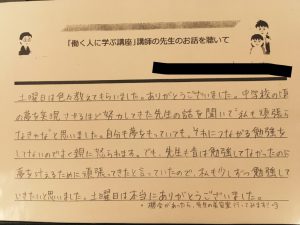 「働く人に学ぶ講座」講師の先生のお話を聴いて
土曜日は色々教えてもらいました。ありがとうございました。中学校の頃
の夢を実現させるほど努力してきた先生の話を聞いて"私も頑張ら
なきゃな"と思いました。自分も夢をもっていても、それにつながる勉強を
してないのでよく親に怒られます。でも、先生も昔は勉強してなかったのに
夢を叶えるために頑張ってきたと言っていたので、私も少しずつ勉強して
いきたいと思いました。土曜日は本当にありがとうございました。
機会があったら、先生の美容室行ってみます!